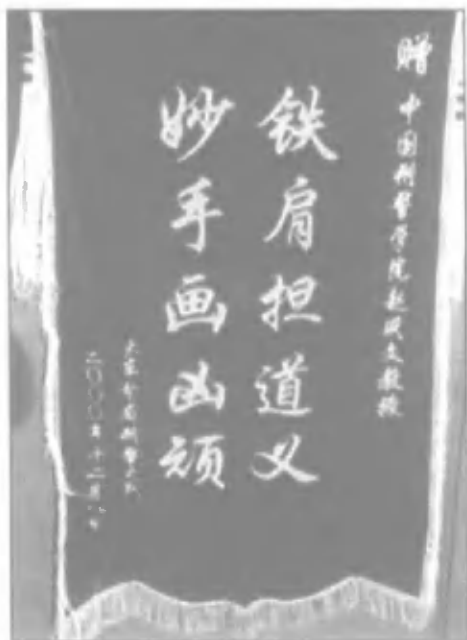 赠 中国刑警学院赵成文教授
铁肩担道义
妙手画凶顽
分局刑警大队
二〇〇〇年十二月八日